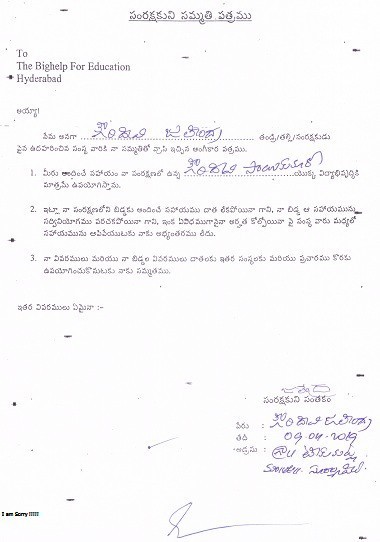 సంరక్షకుని సమ్మతి పత్రము
To
The Bighelp For Education
Hyderabad
అయ్యా!
నేను అనగా తండ్రి/తల్లి/సంరక్షకుడు
పైన ఉదహరించిన సంస్థ వారికి నా సమ్మతితో వ్రాసి ఇచ్చిన అంగీకార పత్రము.
1. మీరు అందించే సహాయం నా సంరక్షణలో ఉన్న యొక్క విద్యాభివృద్ధికి
మాత్రమే ఉపయోగిస్తాను.
2. ఇట్లా నా సంరక్షణలోని బిడ్డకు అందించే సహాయము దాత లేకపోయినా గాని, నా బిడ్డ ఆ సహాయమును
సద్వినియోగము పరచకపోయినా గాని, ఇంక ఏవిధముగానైనా అర్హత కోల్పోయినా పై సంస్థ వారు మధ్యలో
సహాయమును ఆపివేయుటకు నాకు అభ్యంతరము లేదు.
3. నా వివరములు మరియు నా బిడ్డల వివరములు దాతలకు ఇతర సంస్థలకు మరియు ప్రచారము కొరకు
ఉపయోగించుకొనుటకు నాకు సమ్మతము.
ఇతర వివరములు ఏమైనా :-
సంరక్షకుని సంతకం
పేరు :
తేది : 09-04-2019
అడ్రసు :
I am Sorry !!!!!